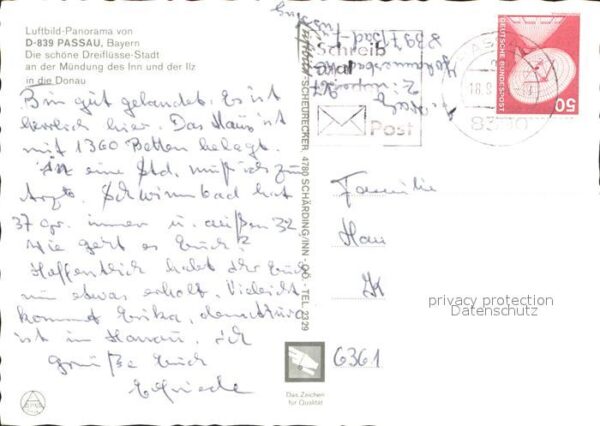 Luftbild-Panorama von
D-839 PASSAU, Bayern
Die schöne Dreiflüsse-Stadt
an der Mündung des Inn und der Ilz
in die Donau
Bin gut gelandet. Es ist
herrlich hier. Das Haus ist
mit 1360 Betten belegt.
eine Std. muß ich zum
Arzt. Schwimmbad hat
37 Gr. innen u. außen 32.
Wie geht es Euch?
Hoffentlich habt Ihr Euch
nun etwas erholt. Vieleicht
kommt Erika, denn
ist in Hanau. Ich
grüße Euch
Elfriede
SCHEURECKER, 4780 SCHÄRDING/INN - OÖ - TEL. 2329
Schreib
mal
Post
DEUTSCHE BUNDESPOST
50
Familie
6361
privacy protection
Datenschutz
Das Zeichen
für Qualität